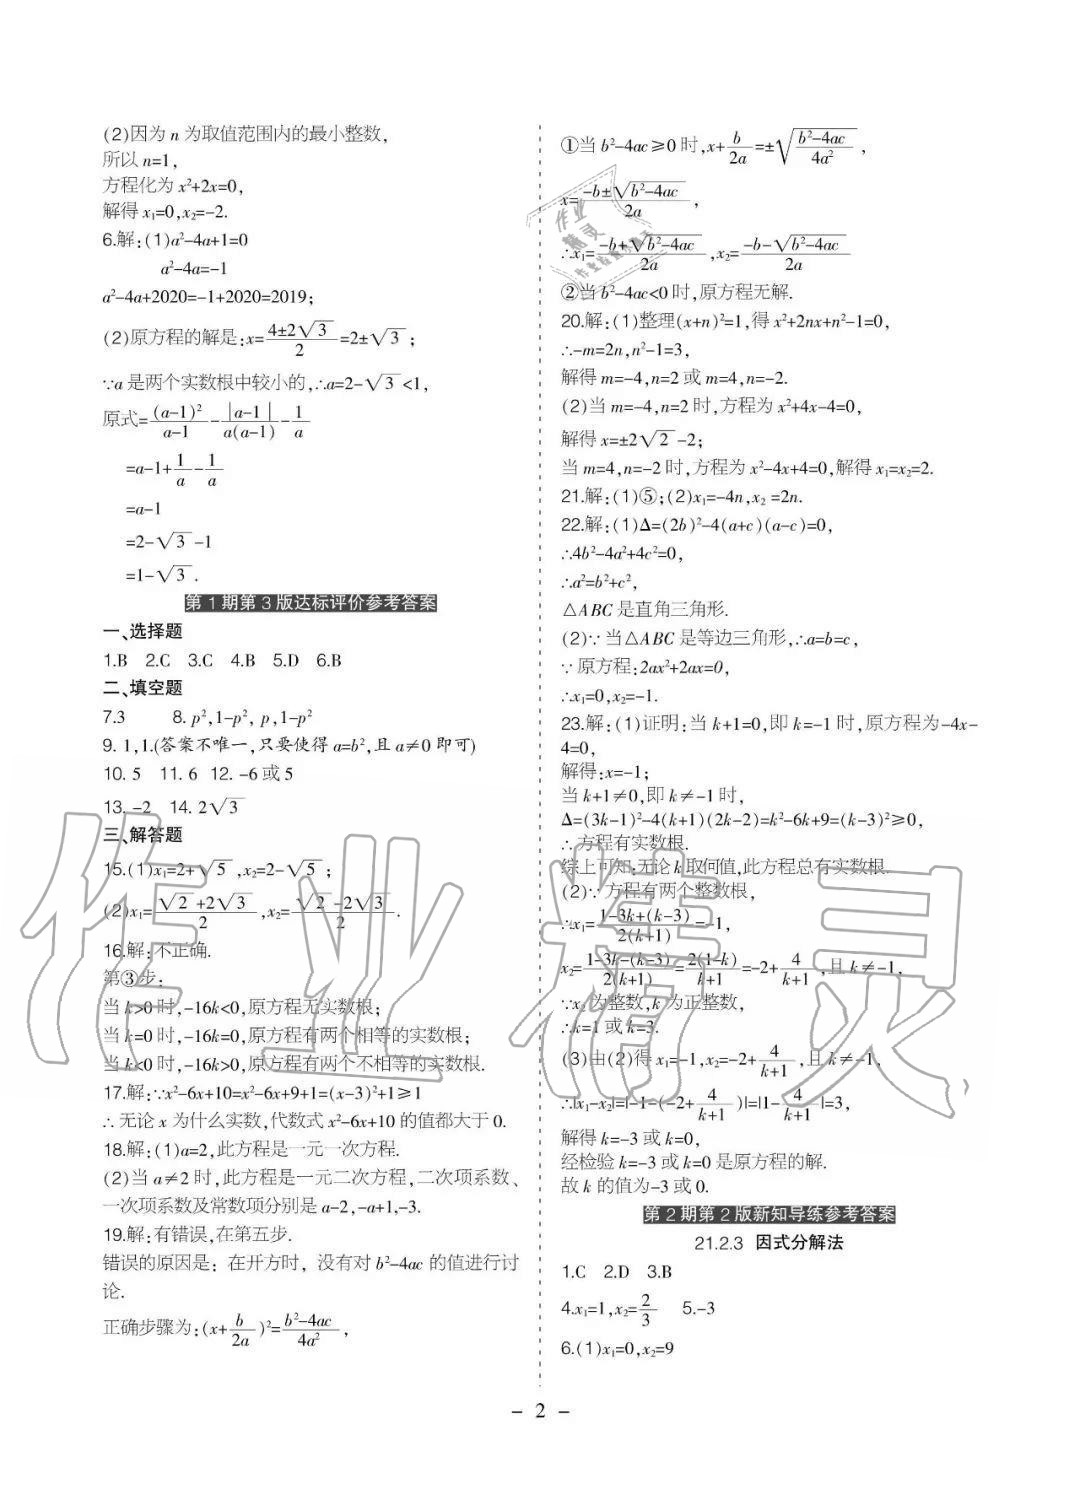 (2)因为 n 为取值范围内的最小整数,
所以 n=1,
方程化为 x²+2x=0,
解得 x₁=0,x₂=-2.
6.解:(1)a²-4a+1=0
a²-4a=-1
a²-4a+2020=-1+2020=2019;
(2)原方程的解是:x=(4±2√3)/2=2±√3;
∵a 是两个实数根中较小的,∴a=2-√3<1,
原式=(a-1)²/(a-1)-|a-1|/(a(a-1))-1/a
=a-1+1/a-1/a
=a-1
=2-√3-1
=1-√3.
第1期第3版达标评价参考答案
一、选择题
1.B 2.C 3.C 4.B 5.D 6.B
二、填空题
7.3 8. p²,1-p², p,1-p²
9. 1,1.(答案不唯一,只要使得 a=b²,且 a≠0 即可)
10. 5 11. 6 12. -6 或 5
13. -2 14. 2√3
三、解答题
15.(1)x₁=2+√5,x₂=2-√5;
(2)x₁=(√2+2√3)/2,x₂=(√2-2√3)/2.
16.解:不正确.
第③步:
当 k>0 时,-16k<0,原方程无实数根;
当 k=0 时,-16k=0,原方程有两个相等的实数根;
当 k<0 时,-16k>0,原方程有两个不相等的实数根.
17.解:∵x²-6x+10=x²-6x+9+1=(x-3)²+1≥1
∴无论 x 为什么实数,代数式 x²-6x+10 的值都大于 0.
18.解:(1)a=2,此方程是一元一次方程.
(2)当 a≠2 时,此方程是一元二次方程,二次项系数、
一次项系数及常数项分别是 a-2,-a+1,-3.
19.解:有错误,在第五步.
错误的原因是:在开方时,没有对 b²-4ac 的值进行讨
论.
正确步骤为:(x+b/2a)²=(b²-4ac)/4a²,
①当 b²-4ac≥0 时,x+b/2a=±√((b²-4ac)/4a²),
x=(-b±√(b²-4ac))/2a,
∴x₁=(-b+√(b²-4ac))/2a,x₂=(-b-√(b²-4ac))/2a
②当 b²-4ac<0 时,原方程无解.
20.解:(1)整理(x+n)²=1,得 x²+2nx+n²-1=0,
∴-m=2n,n²-1=3,
解得 m=-4,n=2 或 m=4,n=-2.
(2)当 m=-4,n=2 时,方程为 x²+4x-4=0,
解得 x=±2√2-2;
当 m=4,n=-2 时,方程为 x²-4x+4=0,解得 x₁=x₂=2.
21.解:(1)⑤;(2)x₁=-4n,x₂=2n.
22.解:(1)Δ=(2b)²-4(a+c)(a-c)=0,
∴4b²-4a²+4c²=0,
∴a²=b²+c²,
△ABC 是直角三角形.
(2)∵当△ABC 是等边三角形,∴a=b=c,
∵原方程:2ax²+2ax=0,
∴x₁=0,x₂=-1.
23.解:(1)证明:当 k+1=0,即 k=-1 时,原方程为-4x-
4=0,
解得:x=-1;
当 k+1≠0,即 k≠-1 时,
Δ=(3k-1)²-4(k+1)(2k-2)=k²-6k+9=(k-3)²≥0,
∴方程有实数根.
综上可知:无论 k 取何值,此方程总有实数根.
(2)∵方程有两个整数根,
∴x₁=(1-3k+(k-3))/(2(k+1))=-1,
x₂=(1-3k-(k-3))/(2(k+1))=2(1-k)/(k+1)=-2+4/(k+1),且 k≠-1,
∵x₂ 为整数,k 为正整数,
∴k=1 或 k=3.
(3)由(2)得 x₁=-1,x₂=-2+4/(k+1),且 k≠-1,
∴|x₁-x₂|=|-1-(-2+4/(k+1))|=|1-4/(k+1)|=3,
解得 k=-3 或 k=0,
经检验 k=-3 或 k=0 是原方程的解.
故 k 的值为-3 或 0.
第2期第2版新知导练参考答案
21.2.3 因式分解法
1.C 2.D 3.B
4.x₁=1,x₂=2/3 5.-3
6.(1)x₁=0,x₂=9
- 2 -
作业精灵
作业
精灵